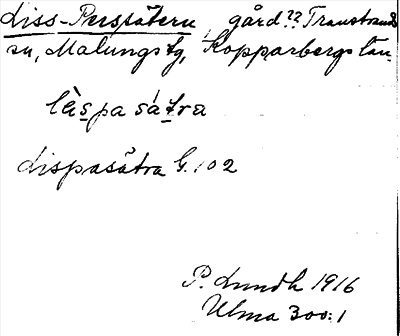 Liss-Perssätern, gård?? Transtrands
sn, Malungs tg, Kopparbergs län.
làspa sá̀tra
Lispasätra G. 102
P. Lundh 1916
Ulma 300:1